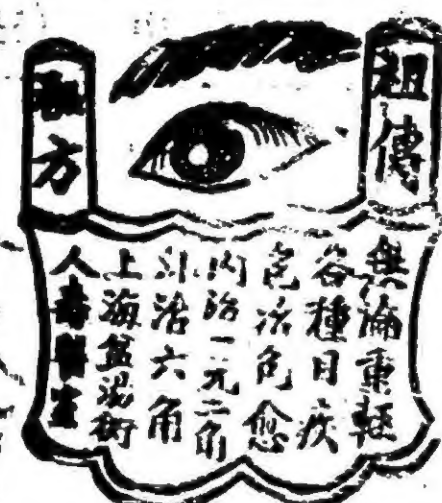 祖傳
秘方
無論重輕
各種目疾
包治包愈
內治一元二角
外治六角
上海盆湯衖
人壽醫室